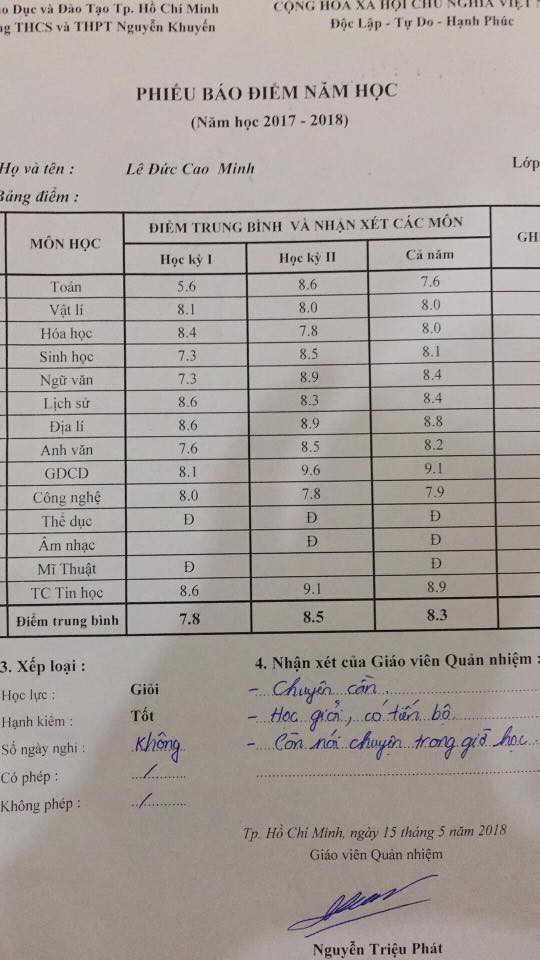 Dục và Đào Tạo Tp. Hồ Chí Minh
CỘNG HÒA XÃ HỘI CHỦ NGHĨA VIỆT
THCS và THPT Nguyễn Khuyến
Độc Lập - Tự Do - Hạnh Phúc
PHIẾU BÁO ĐIỂM NĂM HỌC
(Năm học 2017 - 2018)
Họ và tên : Lê Đức Cao Minh Lớp
Bảng điểm :
MÔN HỌC ĐIỂM TRUNG BÌNH VÀ NHẬN XÉT CÁC MÔN
Học kỳ I Học kỳ II Cả năm
Toán 5.6 8.6 7.6
Vật lí 8.1 8.0 8.0
Hóa học 8.4 7.8 8.0
Sinh học 7.3 8.5 8.1
Ngữ văn 7.3 8.9 8.4
Lịch sử 8.6 8.3 8.4
Địa lí 8.6 8.9 8.8
Anh văn 7.6 8.5 8.2
GDCD 8.1 9.6 9.1
Công nghệ 8.0 7.8 7.9
Thể dục Đ Đ Đ
Âm nhạc Đ Đ
Mĩ Thuật Đ Đ
TC Tin học 8.6 9.1 8.9
Điểm trung bình 7.8 8.5 8.3
3. Xếp loại :
Học lực : Giỏi
Hạnh kiểm : Tốt
Số ngày nghỉ : Không
Có phép : /
Không phép : /
4. Nhận xét của Giáo viên Quản nhiệm :
- Chuyên cần.
- Học giỏi, có tiến bộ.
- Còn nói chuyện trong giờ học.
Tp. Hồ Chí Minh, ngày 15 tháng 5 năm 2018
Giáo viên Quản nhiệm
Nguyễn Triệu Phát